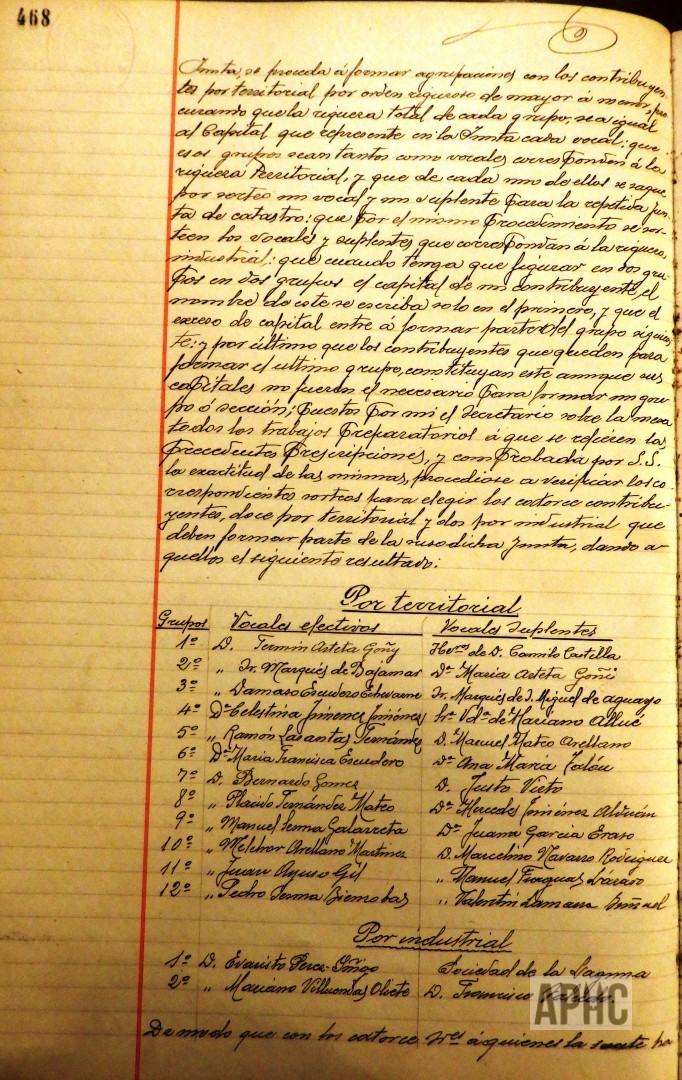 468
Junta, se proceda á formar agrupaciones con los contribuyen-
tes por territorial por orden riguroso de mayor á menor, pro-
curando que la riqueza total de cada grupo, sea igual
al Capital que represente en la Junta cada vocal: que
esos grupos sean tantos como vocales correspondan á la
riqueza territorial, y que de cada uno de ellos se saque
por sorteo un vocal y un suplente para la repetida Jun-
ta de catastro: que por el mismo procedimiento se sor-
teen los vocales y suplentes que correspondan á la riqueza
industrial: que cuando tenga que figurar en dos gru-
pos en dos grupos el capital de un contribuyente, el
nombre de este se escriba solo en el primero, y que el
exceso de capital entre a formar parte del grupo siguien-
te: y por último que los contribuyentes que queden para
formar el ultimo grupo, constituyan este aunque sus
capitales no fueren el necesario para formar un gru-
po ó sección; puestos por mi el Secretario sobre la mesa
todos los trabajos preparatorios á que se refieren las
precedentes prescripciones, y comprobada por S.S.
la exactitud de las mismas, procediose a verificar los co-
rrespondientes sorteos para elegir los catorce contribu-
yentes, doce por territorial y dos por industrial que
deben formar parte de la susodicha Junta, dando a-
quellos el siguiente resultado:
Por territorial
Grupos Vocales efectivos Vocales Suplentes
1º D. Fermín Arteta Goñy Hermº de D. Camilo Castilla
2º „ Sr. Marqués de Bajamar Dª Maria Arteta Goñi
3º „ Damaso Escudero Echevarne Sr. Marqués de S. Miguel de aguayo
4º Dª Celestina Jimenez Jiménez Srª Vdª de Mariano Allué
5º „ Ramón Lasantas Fernández D. Manuel Mateo Arellano
6º Dª Maria Francisca Escudero Dª Ana Maria
7º D. Bernardo Gomez D. Justo
8º „ Placido Fernández Mateo Dª Mercedes Jiménez
9º „ Manuel Serma Galarreta Dª Juana Garcia Eraso
10º „ Melchor Arellano Martinez D. Marcelino Navarro Rodriguez
11º „ Juan Ayuso Gil „ Manuel Fraguas Lázaro
12º „ Pedro Serma „ Valentin
Por industrial
1º D. Evaristo Perez-Iñigo Sociedad de la
2º „ Mariano Villuendas Oliete D. Francisco
De modo que con los catorce Sres á quienes la suerte ha
APHC